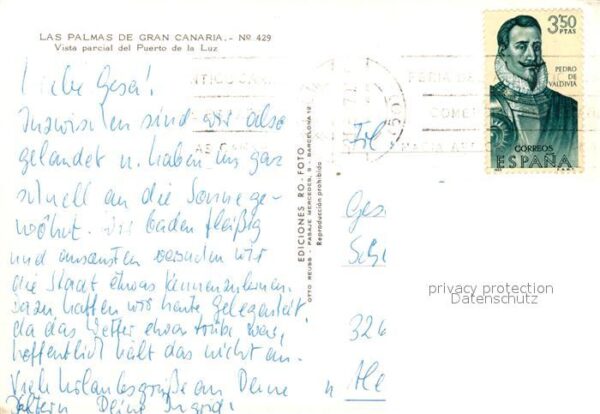 LAS PALMAS DE GRAN CANARIA.- Nº 429
Vista parcial del Puerto de la Luz
Liebe Gesa!
Inzwischen sind wir also
gelandet u. haben uns ganz
schnell an die Sonne ge-
wöhnt. Wir baden fleißig
und ansonsten versuchen wir
die Stadt etwas kennenzulernen.
Dazu hatten wir heute Gelegenheit
da das Wetter etwas trübe war,
hoffentlich hält das nicht an.
Viele Urlaubsgrüße an Deine
Eltern Deine
EDICIONES RO-FOTO
OTTO REUSS - PASAJE MERCEDES, 9 - BARCELONA-12
Reproducción prohibido
3'50
PTAS
PEDRO
DE
VALDIVIA
CORREOS
ESPAÑA
FERIA DE
COME
HACIA
Frl.
Ges
Sch
326
He
privacy protection
Datenschutz